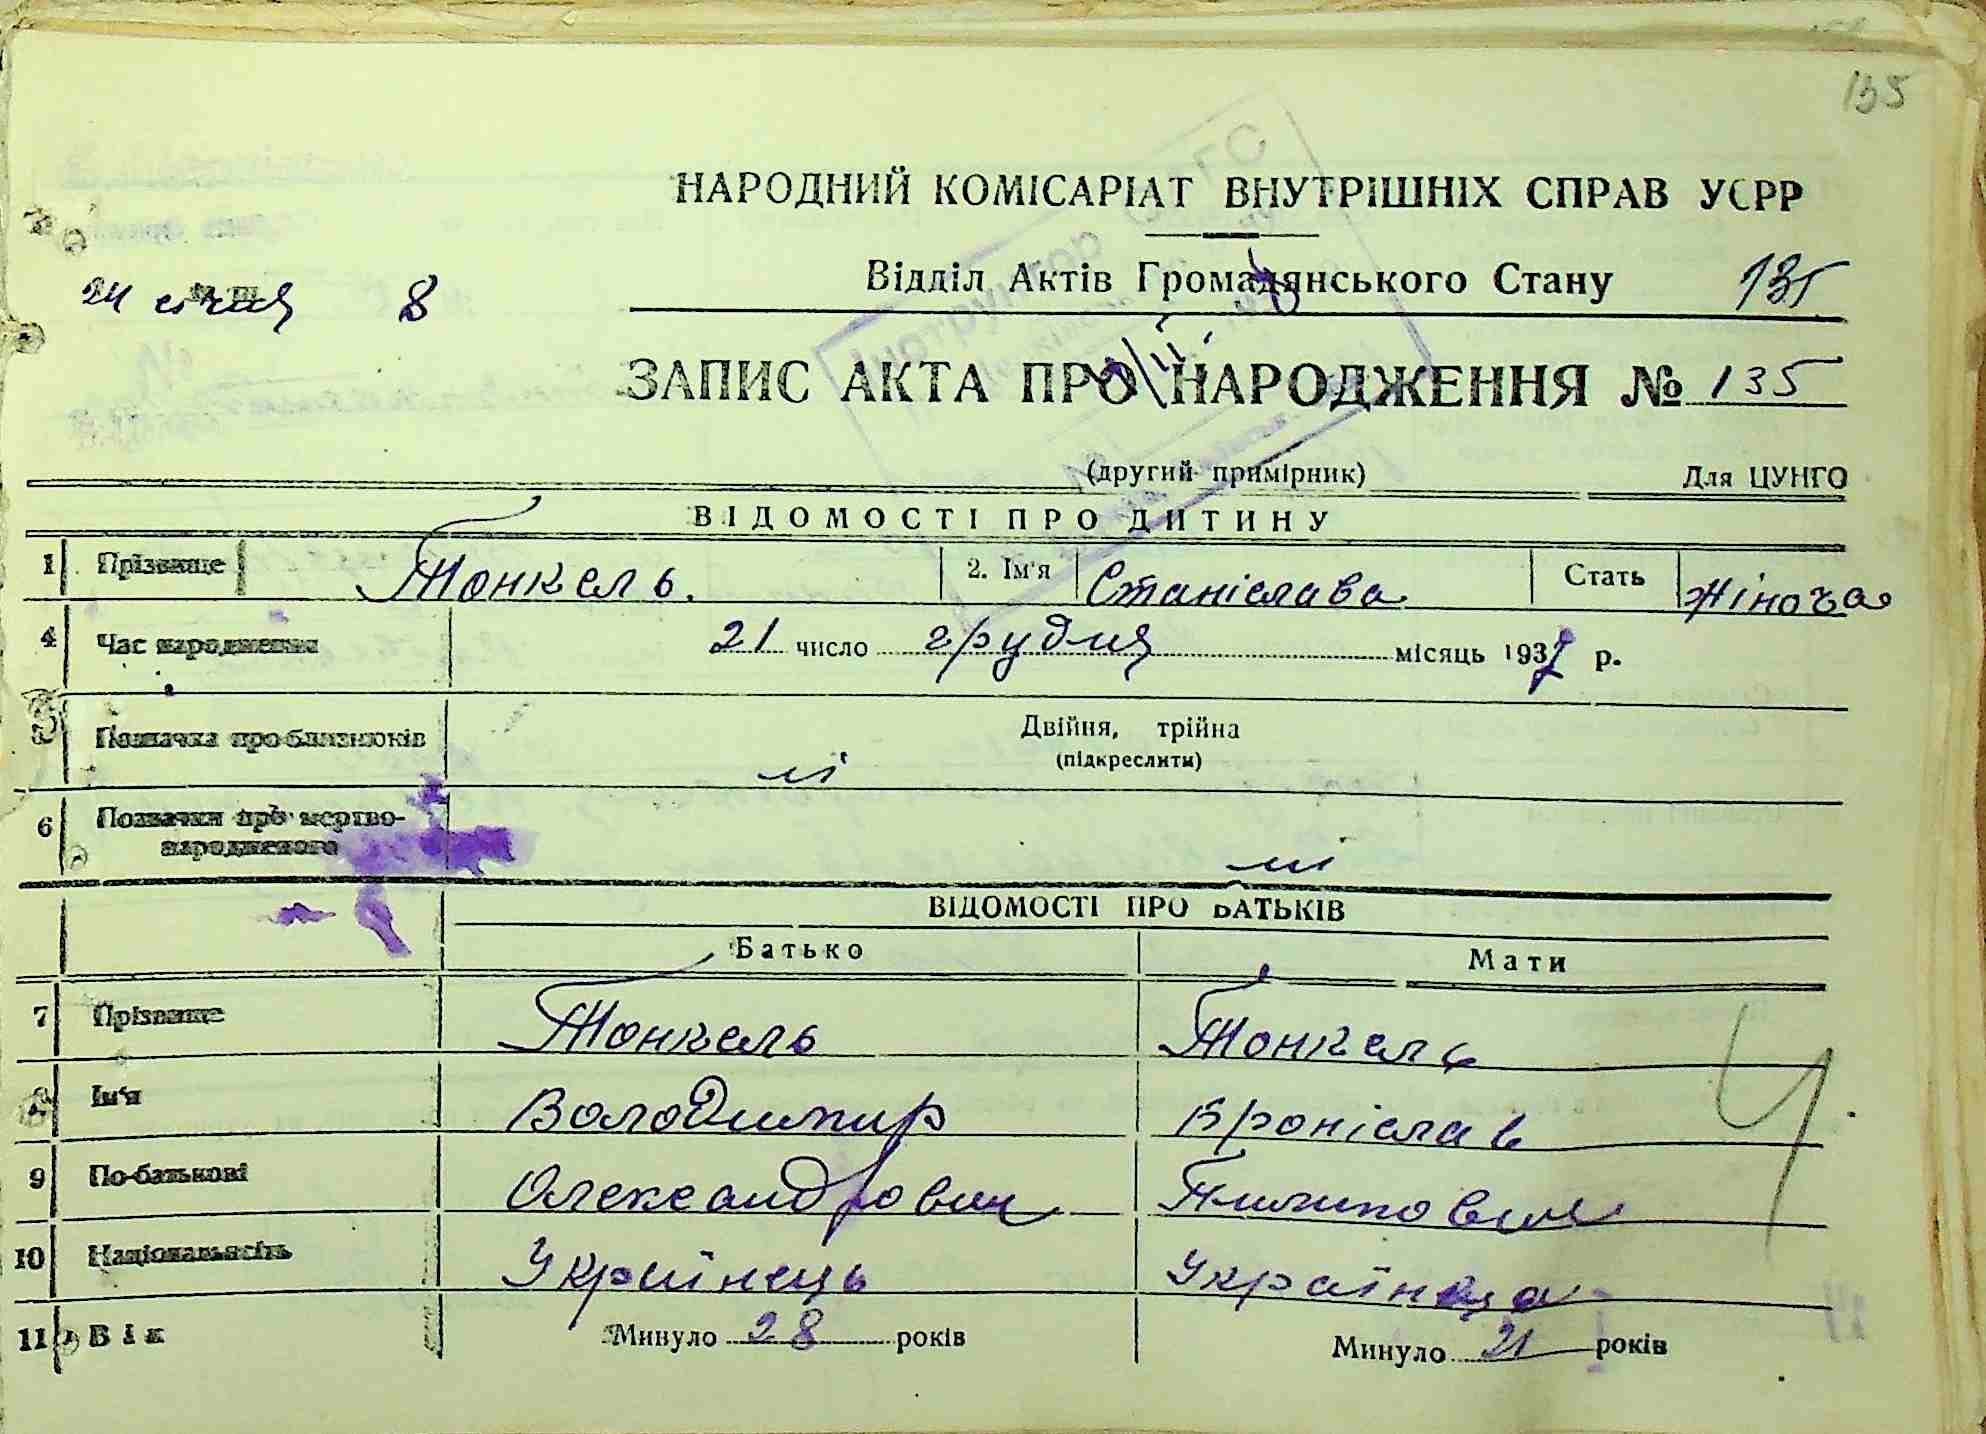 135
НАРОДНИЙ КОМІСАРІАТ ВНУТРІШНІХ СПРАВ УСРР
24 січня 8
Відділ Актів Громадянського Стану 135
ЗАПИС АКТА ПРО НАРОДЖЕННЯ № 135
(другий примірник) Для ЦУНГО
ВІДОМОСТІ ПРО ДИТИНУ
1 Прізвище Тонкель. 2. Ім'я Станіслава Стать Жіноча
4 Час народження 21 число грудня місяць 1937 р.
5 Позначка про близнюків Двійня, трійна
(підкреслити)
ні
6 Позначки про мертво-
народженого ні
ВІДОМОСТІ ПРО БАТЬКІВ
Батько Мати
7 Прізвище Тонкель Тонкель
Ім'я Володимир Броніслав
9 По-батькові Олександрович
10 Національність Українець Українца
11 Вік Минуло 28 років Минуло 21 років